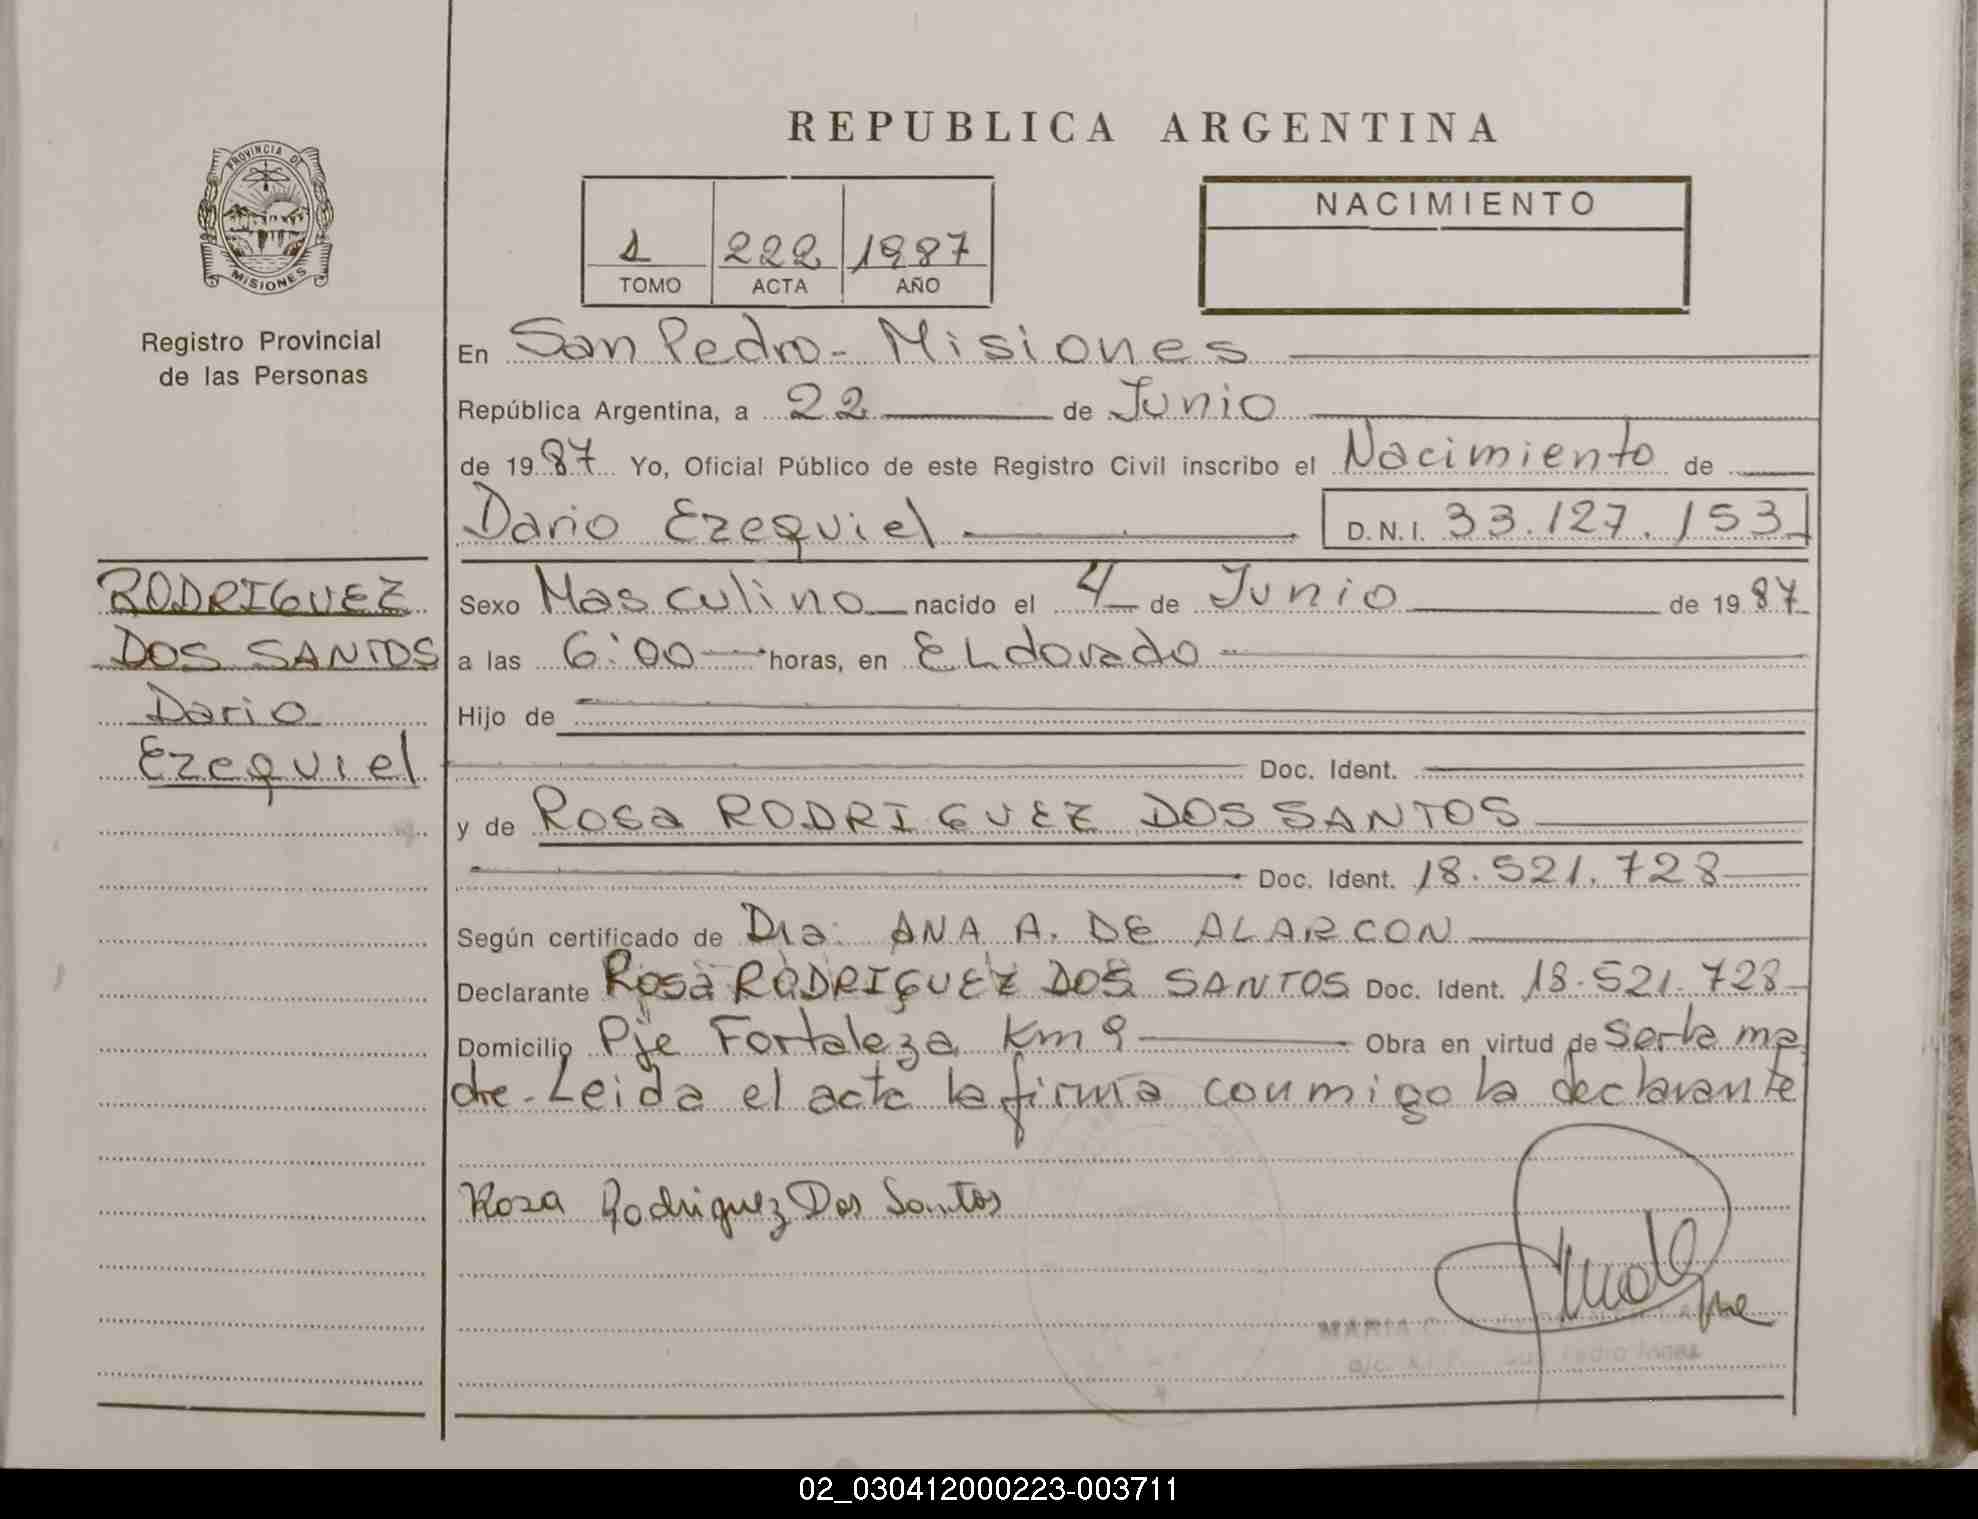 REPUBLICA ARGENTINA
PROVINCIA DE
MISIONES
Registro Provincial
de las Personas
1 222 1987
TOMO ACTA AÑO
NACIMIENTO
En San Pedro - Misiones
República Argentina, a 22 de Junio
de 1987 Yo, Oficial Público de este Registro Civil inscribo el Nacimiento de
Dario Ezequiel D.N.I. 33.127.153
RODRIGUEZ
DOS SANTOS
Dario
Ezequiel
Sexo Masculino nacido el 4 de Junio de 1987
a las 6:00 horas, en ELdorado
Hijo de
Doc. Ident.
y de Rosa RODRIGUEZ DOS SANTOS
Doc. Ident. 18.521.728
Según certificado de Dra. ANA A. DE ALARCON
Declarante Rosa RODRIGUEZ DOS SANTOS Doc. Ident. 18.521.728
Domicilio Pje Fortaleza Km 9 Obra en virtud de Ser la ma
dre - Leida el acta la firma conmigo la declarante
Rosa Rodriguez Dos Santos
MARIA
Pedro
02_030412000223-003711